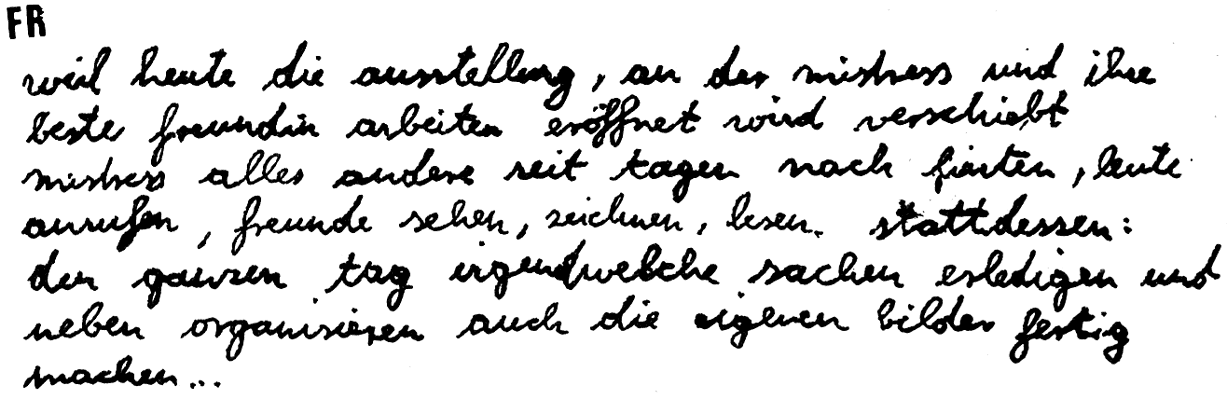 FR
weil heute die ausstellung, an der mistress und ihre
beste freundin arbeiten eröffnet wird verschiebt
mistress alles andere seit tagen nach hinten, leute
anrufen, freunde sehen, zeichnen, lesen. stattdessen:
den ganzen tag irgendwelche sachen erledigen und
neben organisieren auch die eigenen bilder fertig
machen...